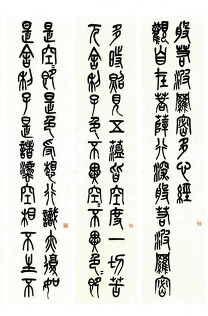 般若波羅密多心經
觀自在菩薩行深般若波羅密
多時照見五蘊皆空度一切苦
厄舍利子色不異空々不異色々即
是空即是色受想行識亦復如
是舍利子是諸法空相不生不